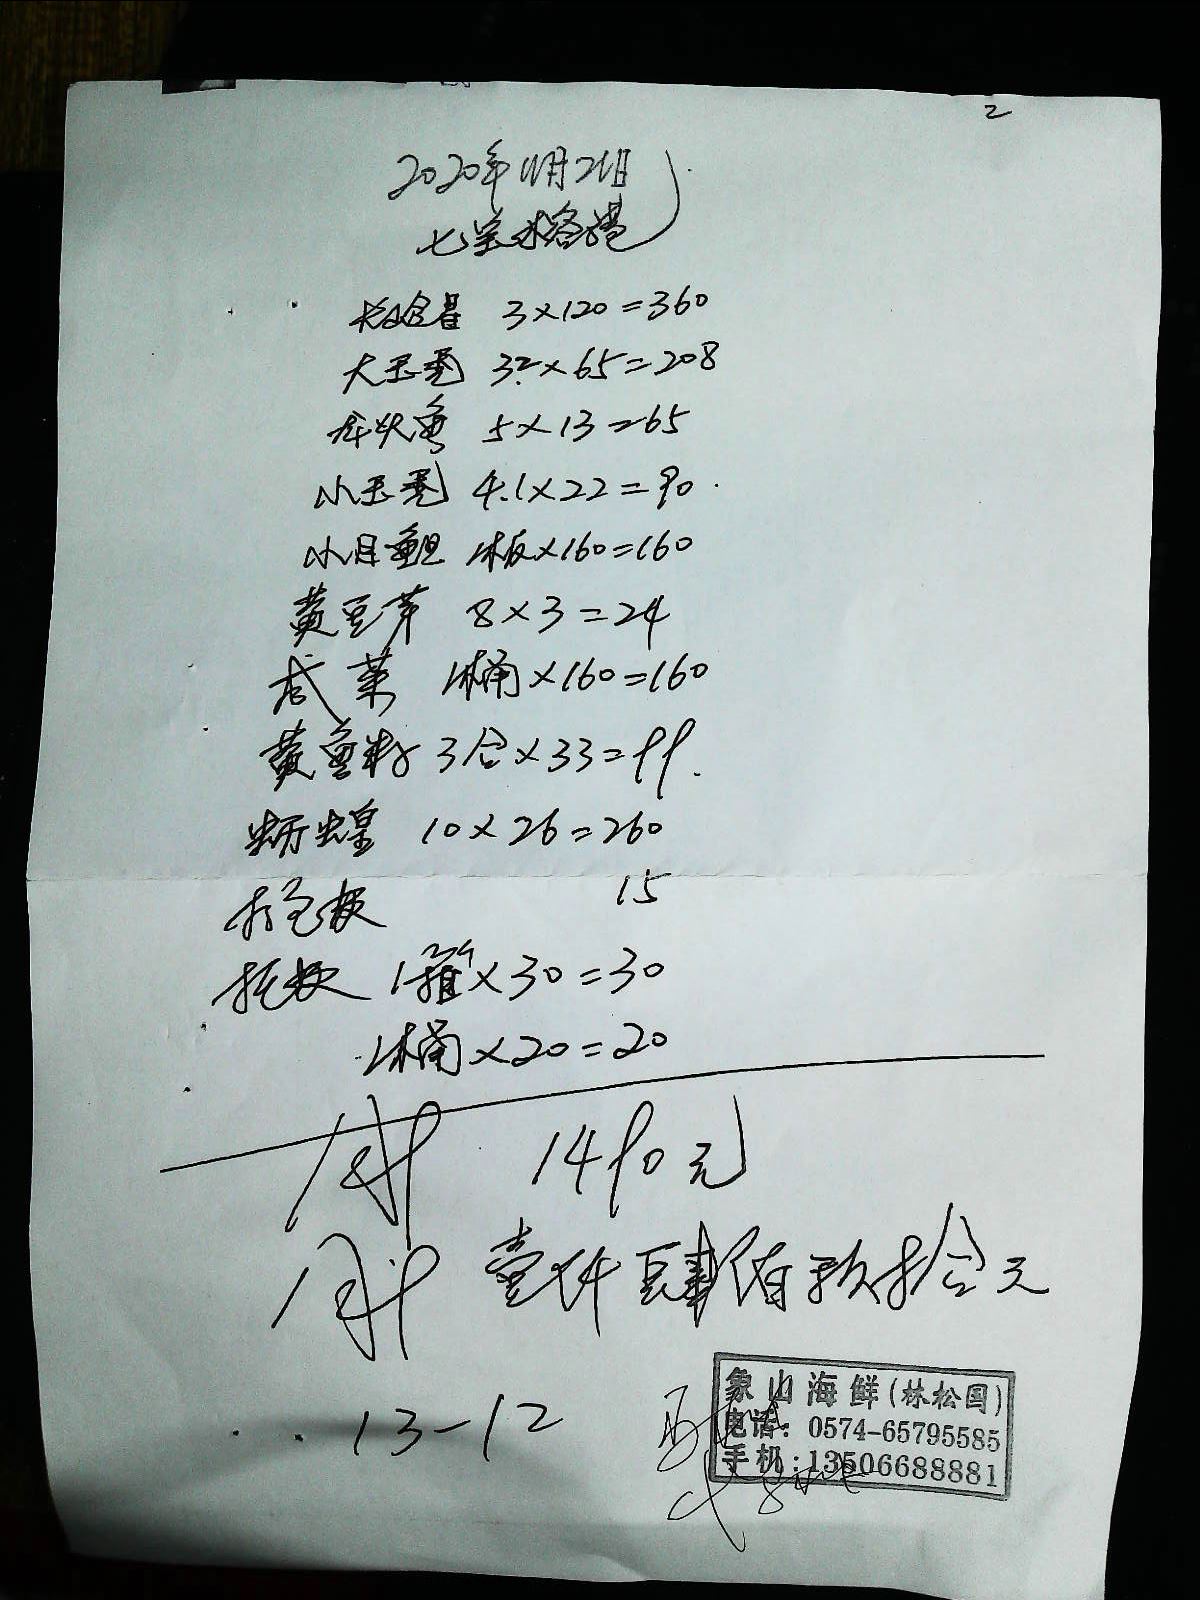 2
2020年11月21日
七宝水各港
大哈蟇 3×120=360
大玉秃 3.2×65=208
龙头鱼 5×13=65
小玉秃 4.1×22=90
小目鱼旦 1板×160=160
黄豆芽 8×3=24
咸菜 1桶×160=160
黄鱼籽 3合×33=99
蛎蝗 10×26=260
打包费 15
托费 1箱×30=30
1桶×20=20
1490元
壹仟肆佰玖拾元
13-12
象山海鲜(林松国)
电话:0574-65795585
手机:13506688881